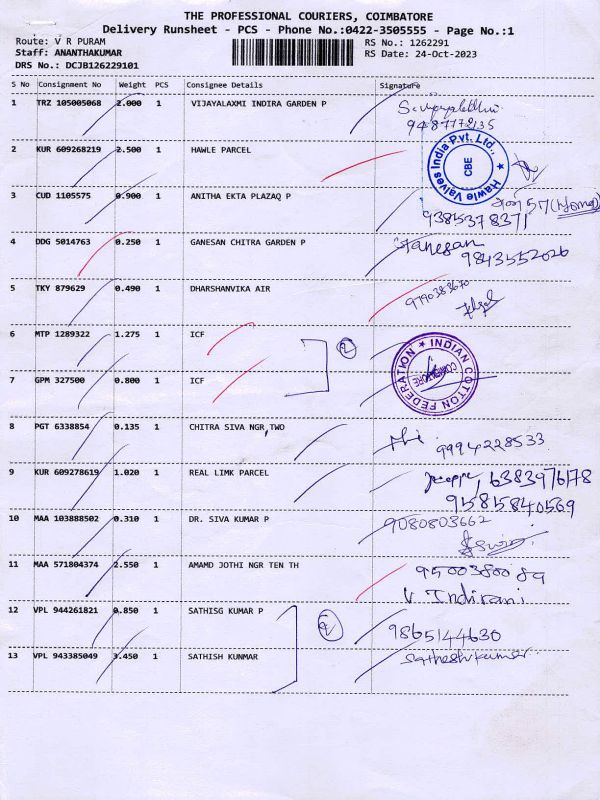 THE PROFESSIONAL COURIERS, COIMBATORE
Delivery Runsheet - PCS - Phone No.:0422-3505555 - Page No.:1
Route: V R PURAM
RS No.: 1262291
Staff: ANANTHAKUMAR
RS Date: 24-Oct-2023
DRS No.: DCJB126229101
S No Consignment No Weight PCS Consignee Details Signature
1 TRZ 105005068 2.000 1 VIJAYALAXMI INDIRA GARDEN P
9487772135
2 KUR 609268219 2.500 1 HAWLE PARCEL
Hawle Valves India Pvt. Ltd., ★ CBE
3 CUD 1105575 0.900 1 ANITHA EKTA PLAZAQ P
9385378371
4 DDG 5014763 0.250 1 GANESAN CHITRA GARDEN P
Ganesan
9843552026
5 TKY 879629 0.490 1 DHARSHANVIKA AIR
9790383670
6 MTP 1289322 1.275 1 ICF
2
INDIAN COTTON FEDERATION ★ COIMBATORE
7 GPM 327500 0.800 1 ICF
8 PGT 6338854 0.135 1 CHITRA SIVA NGR,TWO
9994228533
9 KUR 609278619 1.020 1 REAL LIMK PARCEL
6383976178
9585840569
10 MAA 103888502 0.310 1 DR. SIVA KUMAR P
9080803662
11 MAA 571804374 2.550 1 AMAMD JOTHI NGR TEN TH
9500380089
V Indirani
12 VPL 944261821 0.850 1 SATHISG KUMAR P
2
9865144630
13 VPL 943385049 3.450 1 SATHISH KUNMAR
Satheshkumar